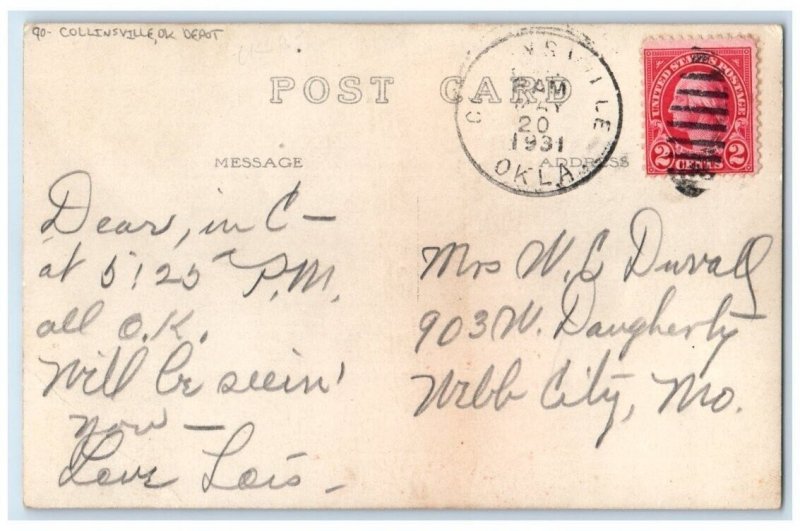 90- COLLINSVILLE, OK DEPOT
POST CARD
8 AM
MAY
20
1931
OKLA.
UNITED STATES POSTAGE
2 CENTS 2
MESSAGE
ADDRESS
Dear, in C—
at 5:25 P.M.
all O.K.
Will be seein'
you —
Love Lois —
Mrs W. C Duvall
903 W. Daugherty
Webb City, Mo.